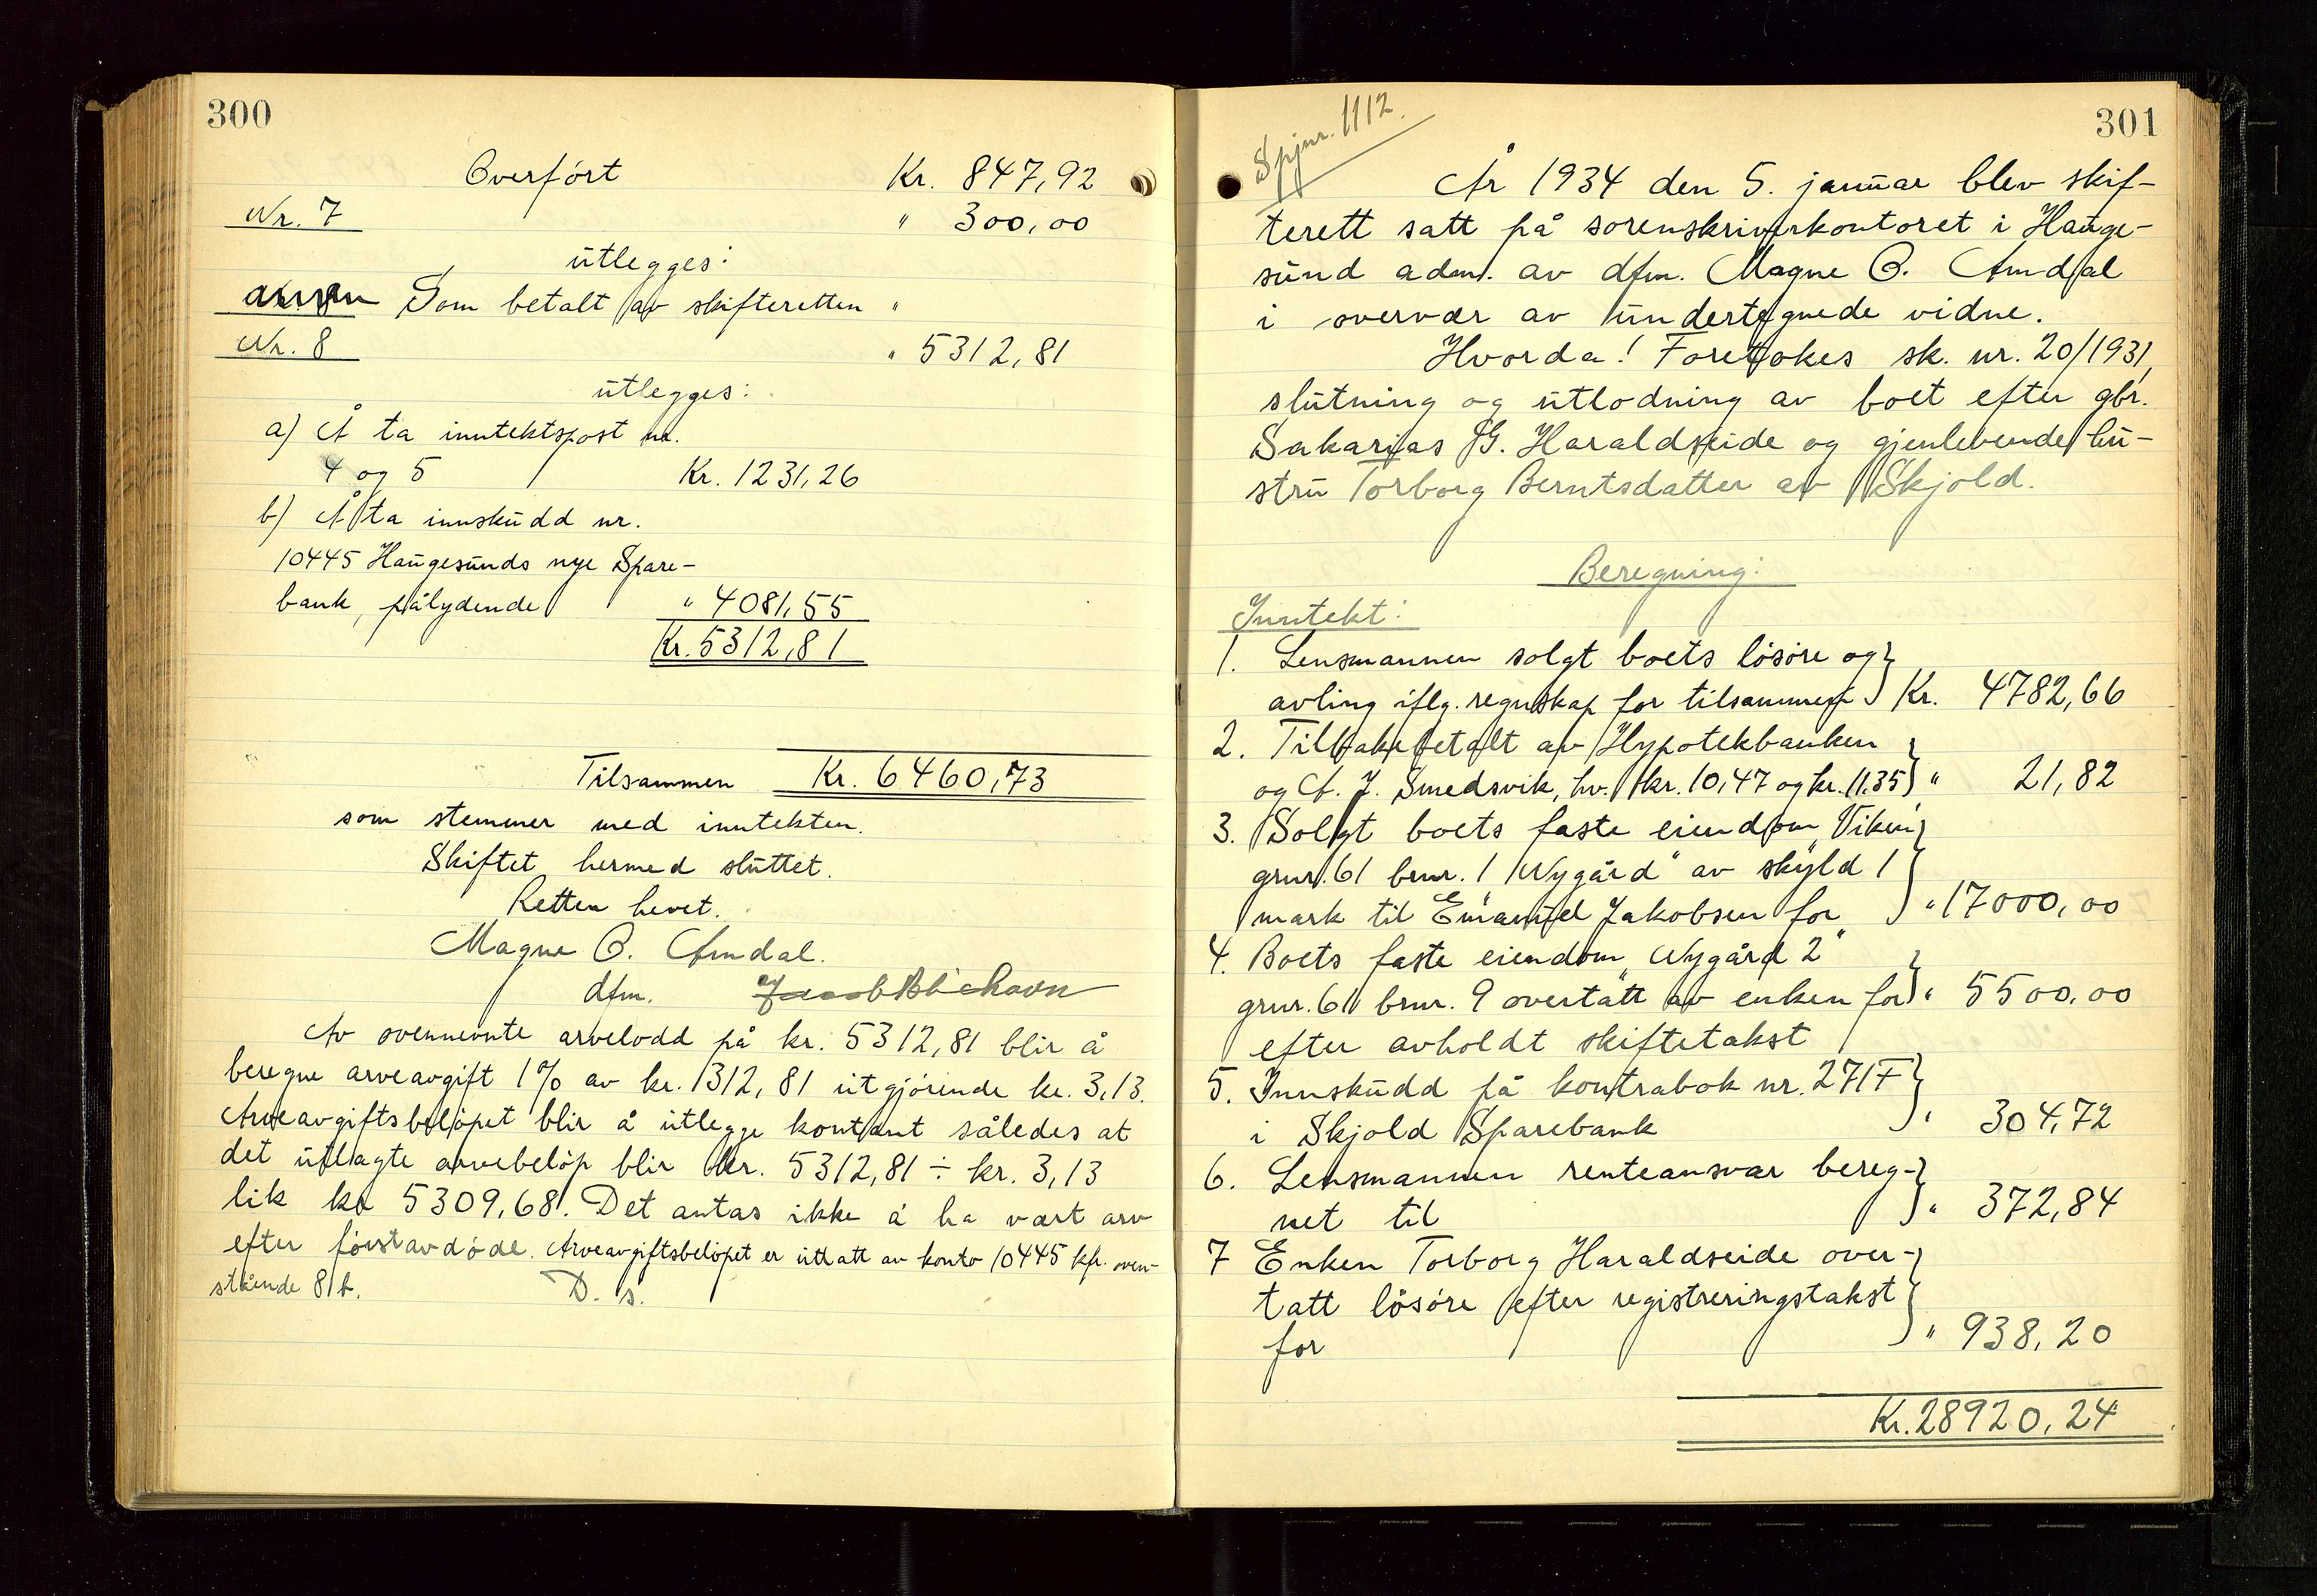 300
Overført Kr. 847,92
Nr. 7 " 300,00
utlegges:
Som betalt av skifteretten "
Nr. 8 " 5312,81
utlegges:
a) Å ta inntektspost nr.
4 og 5 Kr. 1231,26
b) Å ta innskudd nr.
10445 Haugesunds nye Spare-
bank, pålydende " 4081,55
Kr. 5312,81
Tilsammen Kr. 6460,73
som stemmer med inntekten.
Skiftet hermed sluttet.
Retten hevet.
Magne O. Amdal.
dfm.
Av ovennevnte arvelodd på kr. 5312,81 blir å
beregne arveavgift 1% av kr. 1312,81 utgjørende kr. 3,13.
Arveavgiftsbeløpet blir å utlegge kontant således at
det utlagte arvebeløp blir kr. 5312,81 ÷ kr. 3,13
lik kr 5309,68. Det antas ikke å ha vært arv
efter førstavdøde. Arveavgiftsbeløpet er uttatt av konto 10445 kfr. oven-
stående 8 b. D. s.
301
Spjnr. 1112.
År 1934 den 5. januar blev skif-
terett satt på sorenskriverkontoret i Hauge-
sund adm. av dfm. Magne O. Amdal
i overvær av undertegnede vidne.
Hvorda! Foretokes sk. nr. 20/1931,
slutning og utlodning av boet efter gbr.
Sakarias G. Haraldseide og gjenlevende hu-
stru Torborg Berntsdatter av Skjold.
Beregning:
Inntekt:
1. Lensmannen solgt boets løsøre og
avling iflg. regnskap for tilsammen Kr. 4782,66
2. Tilbakebetalt av Hypotekbanken
og A. J. Smedsvik, hv. kr. 10,47 og kr. 11,35 " 21,82
3. Solgt boets faste eiendom Viken,
grnr. 61 brnr. 1 "Nygård" av skyld 1
mark til Emanuel Jakobsen for " 17000,00
4. Boets faste eiendom "Nygård 2"
grnr. 61 brnr. 9 overtatt av enken for " 5500,00
efter avholdt skiftetakst
5. Innskudd på kontrabok nr. 271 F
i Skjold Sparebank " 304,72
6. Lensmannen renteansvar bereg-
net til " 372,84
7 Enken Torborg Haraldseide over-
tatt løsøre efter registreringstakst
for " 938,20
Kr. 28920,24